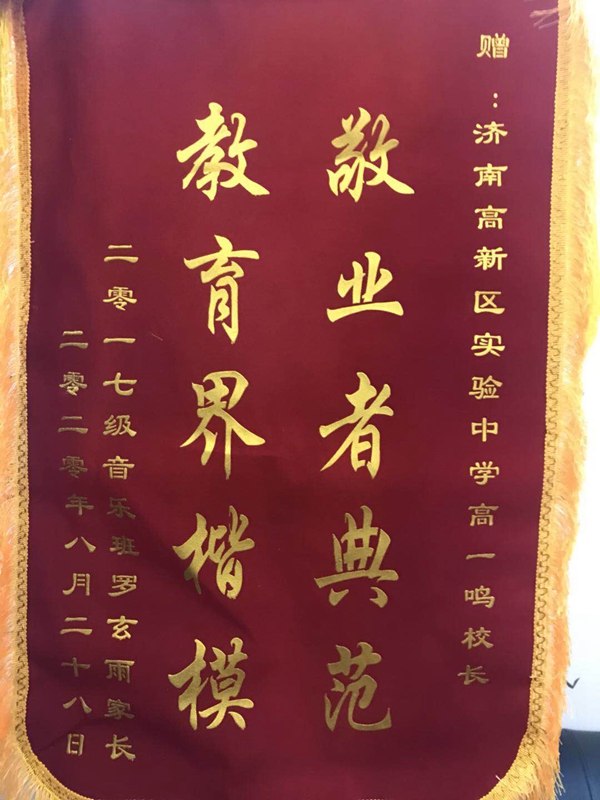 赠：济南高新区实验中学高一鸣校长
敬业者典范
教育界楷模
二零一七级音乐班罗玄雨家长
二零二零年八月二十八日